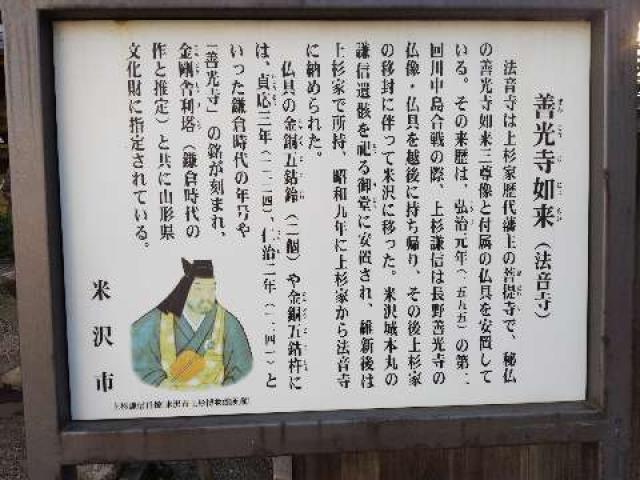 善光寺如来（法音寺）
法音寺は上杉家歴代藩主の菩提寺で、秘仏
の善光寺如来三尊像と付属の仏具を安置して
いる。その来歴は、弘治元年（一五五五）の第二
回川中島合戦の際、上杉謙信は長野善光寺の
仏像・仏具を越後に持ち帰り、その後上杉家
の移封に伴って米沢に移った。米沢城本丸の
謙信遺骸を祀る御堂に安置され、維新後は
上杉家で所持、昭和九年に上杉家から法音寺
に納められた。
仏具の金銅五鈷鈴（二個）や金銅五鈷杵に
は、貞応三年（一二二四）、仁治二年（一二四一）と
いった鎌倉時代の年号や
「善光寺」の銘が刻まれ、
金剛舎利塔（鎌倉時代の
作と推定）と共に山形県
文化財に指定されている。
米沢市